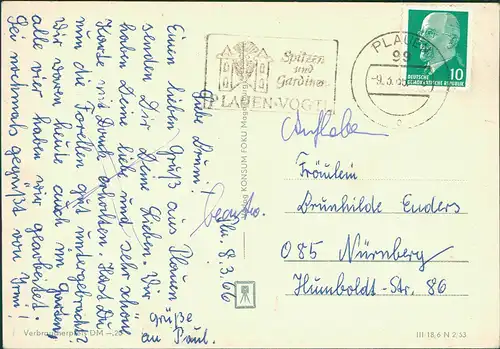 Pl. 8.3.66
Gute Bruni!
Einen lieben Gruß aus Plauen
senden Dir Deine Lieben. Wir
haben Deine liebe und sehr schöne
Karte mit Dank erhalten. Hast Du
nun die Forellen gut untergebracht?
Wir waren heute auch im Garten,
alle vier haben wir gearbeitet.
Sei nochmals gegrüßt von
Grüße
an Paul.
Verbraucherpreis DM -,25
Verlag KONSUM FOKU Magdeburg
Spitzen
und
Gardinen
PLAUEN-VOGTL
PLAUEN
99
-9.3.66
DEUTSCHE
DEMOKRATISCHE REPUBLIK
10
Fräulein
Brunhilde Enders
085 Nürnberg
Humboldt-Str. 86
III 18,6 N 2/63